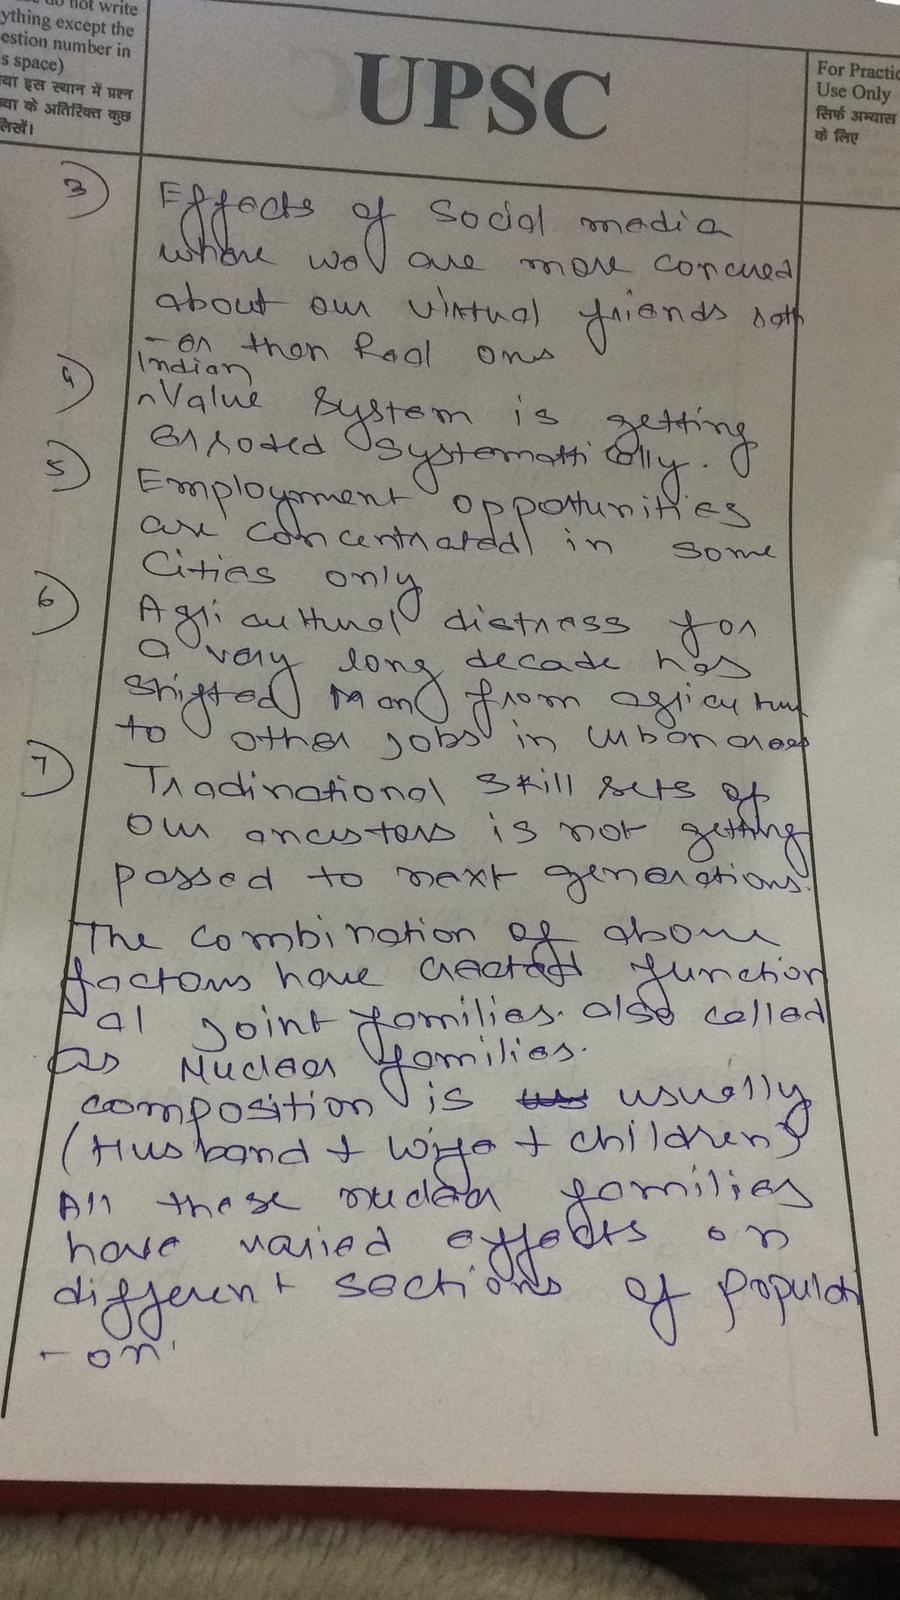 do not write
ything except the
estion number in
s space)
या इस स्थान में प्रश्न
ख्या के अतिरिक्त कुछ
लिखें।
UPSC
For Practic
Use Only
सिर्फ अभ्यास
के लिए
3) Effects of social media
where we are more concured
about our virtual friends rath
-er than Real ones
Indian
4) ^Value system is getting
erroded systemattically.
5) Employment opportunities
are concentrated in some
Cities only
6) Agricultural distress for
a very long decade has
shifted Man from agricultur
to other jobs in urban areas
7) Tradinational skill sets of
our ancestors is not getting
passed to next generations.
The combination of above
factors have created function
al joint families. also called
as Nuclear families.
composition is usually
(Husband + wife + children)
All these nuclear families
have varied effects on
different sections of populati
-on.